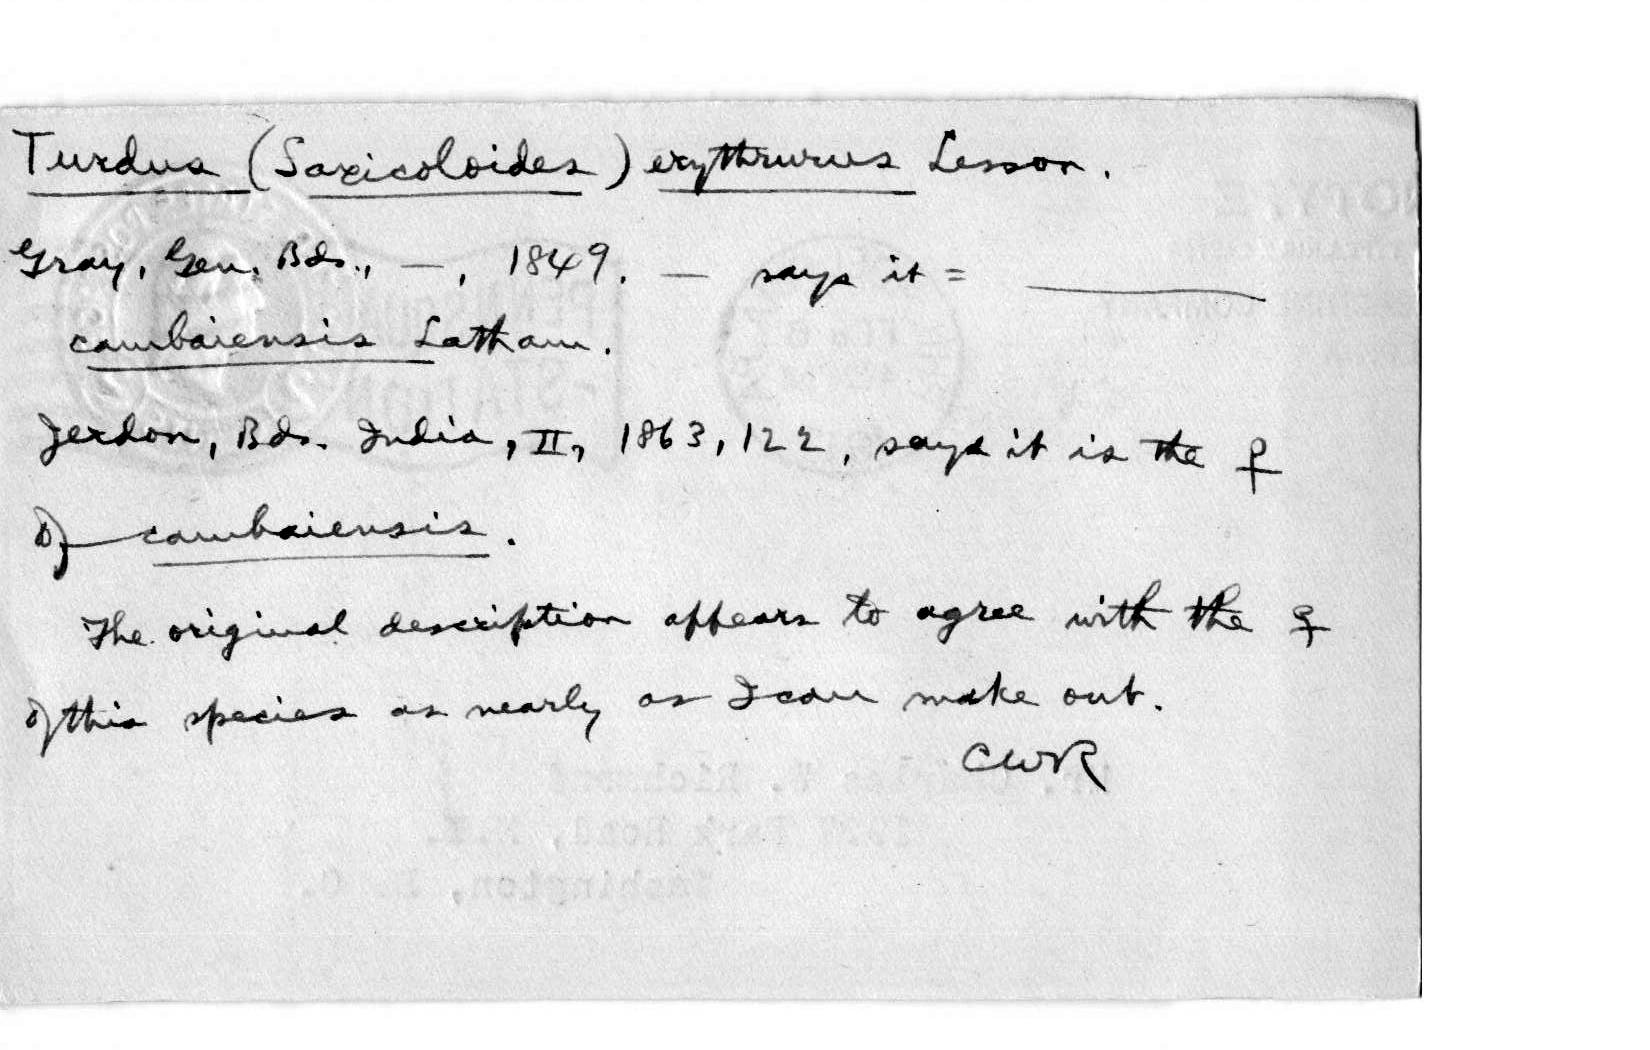 Turdus (Saxicoloides) erythrurus Lesson.
Gray, Gen. Bds., —, 1849. — says it = ______
cambaiensis Latham.
Jerdon, Bds. India, II, 1863, 122, says it is the ♀
of cambaiensis.
The original description appears to agree with the ♀
of this species as nearly as I can make out.
CWR